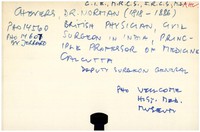 C.I.E., M.R.C.S., F.R.C.S., M.D.
CHEVERS, DR. NORMAN (1818-1886)
PHO 14560
PHO 14607
BY JABBOOD
BRITISH PHYSICIAN, CIVIL
SURGEON IN INDIA, PRINC-
IPLE PROFESSOR OF MEDICINE
CALCUTTA
DEPUTY SURGEON GENERAL
PHO WELCOME
HIST. MED.
MUSEUM